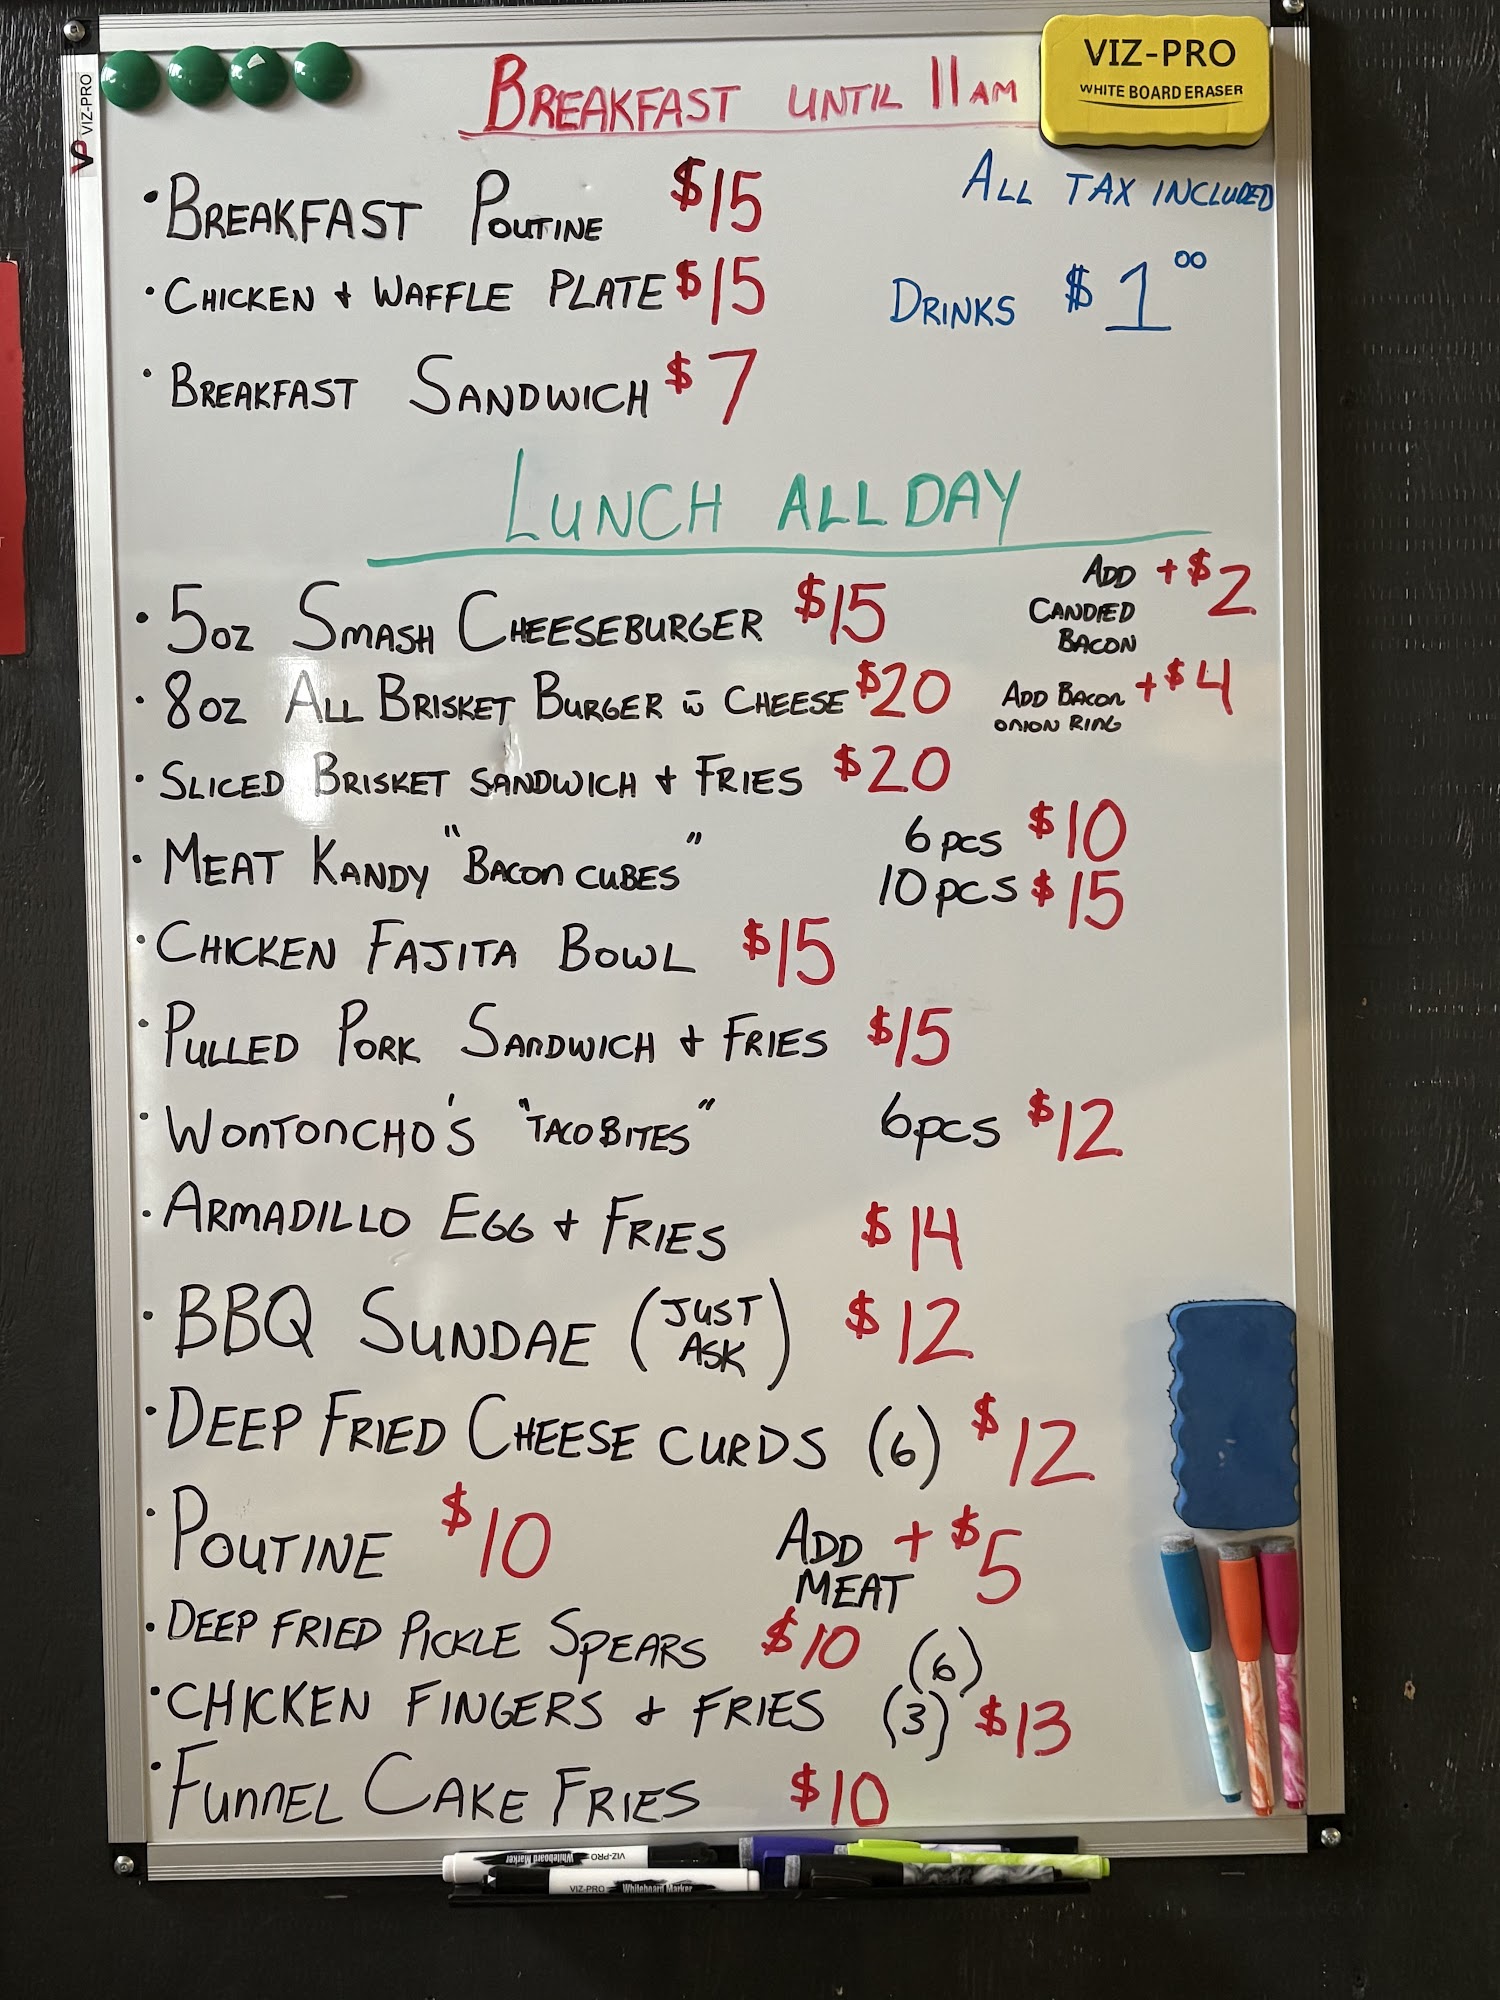 VIZ-PRO
BREAKFAST UNTIL 11AM
VIZ-PRO
WHITE BOARD ERASER
ALL TAX INCLUDED
• BREAKFAST POUTINE $15
• CHICKEN + WAFFLE PLATE $15
DRINKS $1 00
• BREAKFAST SANDWICH $7
LUNCH ALL DAY
• 5oz SMASH CHEESEBURGER $15
ADD + $2
CANDIED
BACON
• 8oz ALL BRISKET BURGER w CHEESE $20
ADD BACON + $4
ONION RING
• SLICED BRISKET SANDWICH + FRIES $20
• MEAT KANDY "BACON CUBES" 6pcs $10
10pcs $15
• CHICKEN FAJITA BOWL $15
• PULLED PORK SANDWICH + FRIES $15
• WONTONCHO'S "TACO BITES" 6pcs $12
• ARMADILLO EGG + FRIES $14
• BBQ SUNDAE (JUST ASK) $12
• DEEP FRIED CHEESE CURDS (6) $12
• POUTINE $10 ADD MEAT + $5
• DEEP FRIED PICKLE SPEARS $10 (6)
• CHICKEN FINGERS + FRIES (3) $13
• FUNNEL CAKE FRIES $10
Whiteboard Marker VIZ-PRO
VIZ-PRO Whiteboard Marker